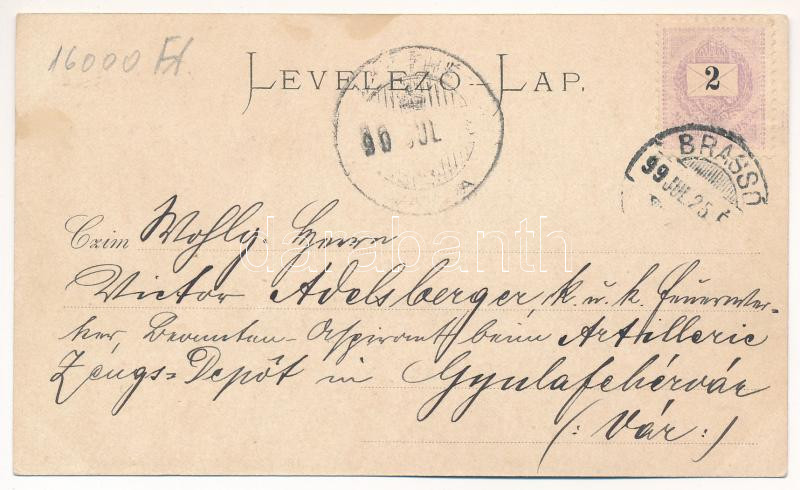 16000 Ft.
LEVELEZŐ-LAP.
2
BRASSÓ
99 JUL. 25
99 JUL
Czim Wohlg. Herrn
darabanth
Victor Adelsberger, k. u. k. Feuerwer-
ker, Beamten-Aspirant beim Artillerie
Zeugs=Depôt in Gyulafehérvár
(: Vár :)